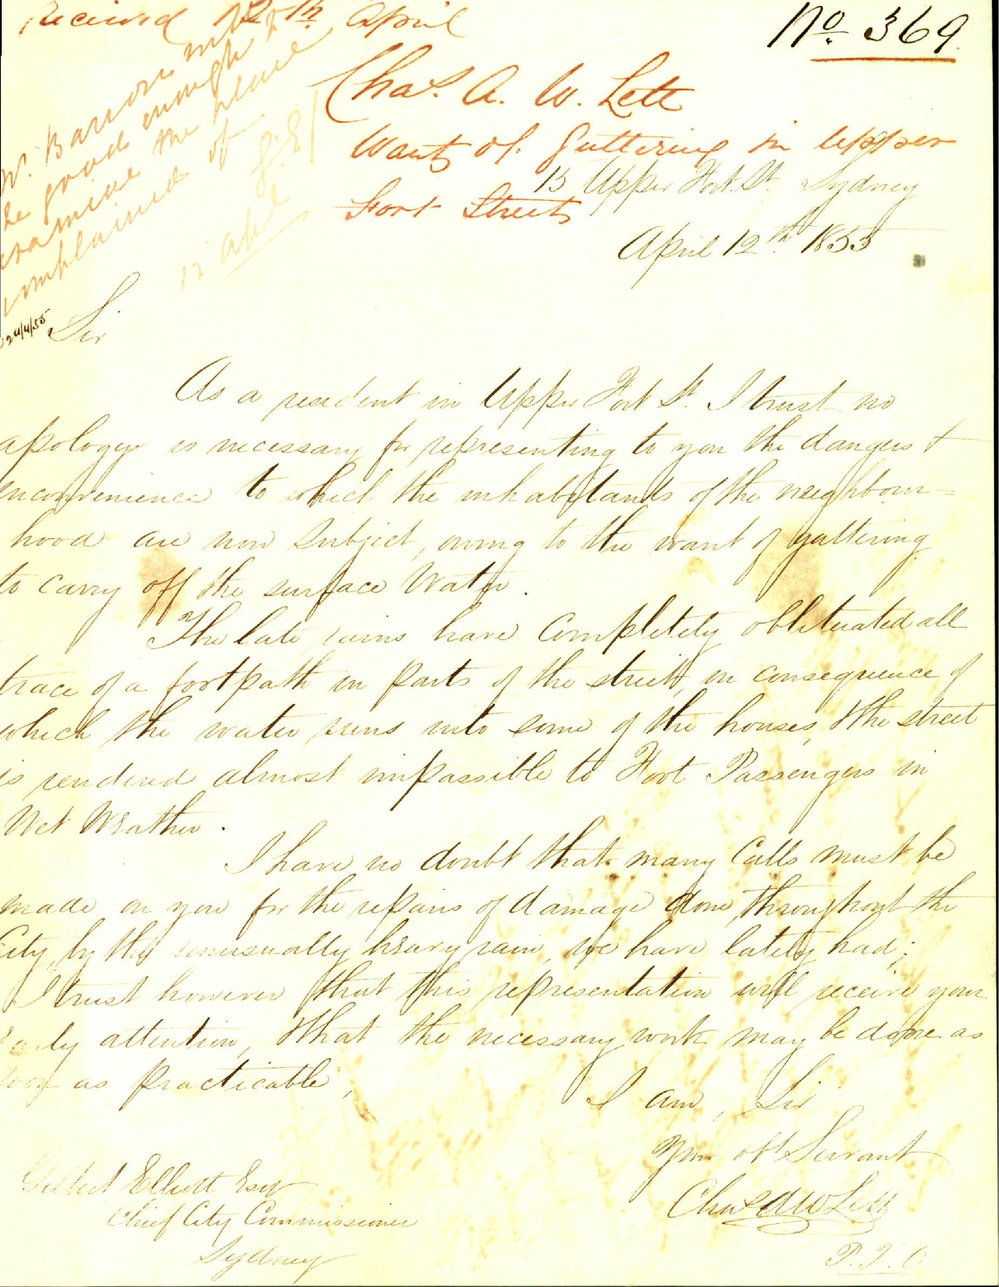 Received 12th April
No. 369.
Mr. Barron will
be good enough to
examine the place
complained of
G.E/
17 April
Chas. A. W. Lett
Want of Guttering in Upper
Fort Street
15 Upper Fort St. Sydney
April 12th 1855
24/4/55
Sir
As a resident in Upper Fort St. I trust no
apology is necessary for representing to you the dangers &
inconvenience to which the inhabitants of the neighbour=
hood are now subject, owing to the want of guttering
to carry off the surface Water.
The late rains have completely obliterated all
trace of a footpath in parts of the street, in consequence of
which the water runs into some of the houses, & the street
is rendered almost impassible to Foot Passengers in
Wet Weather.
I have no doubt that many Calls must be
made on you for the repairs of damage done throughout the
City, by the unusually heavy rain, we have lately had;
I trust however that this representation will receive your
Early attention, & that the necessary work may be done as
soon as practicable,
I am, Sir
Your obt Servant
Chas A W Lett
Gilbert Elliott Esq
Chief City Commissioner
Sydney
P.T.O